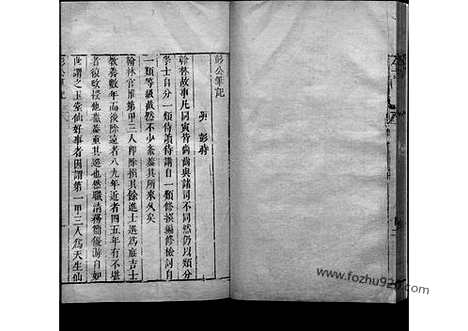 彭公筆記
明 彭時
翰林故事凡同寅皆尚齒與諸司不同然仍以類分
學士自分一類侍讀侍講自一類修撰編修檢討自
一類等級截然不少紊蓋其所來久矣
翰林官惟第一甲三人即除撰其餘進士選爲庶吉士
教養數年而後除遠者八九年近者四五年有不堪
者從改授他職蓋重其選也然職清務簡優游自如
世謂之玉堂仙好事者因謂第一甲三人爲天生仙
彭公筆記
www.fozhu920.com